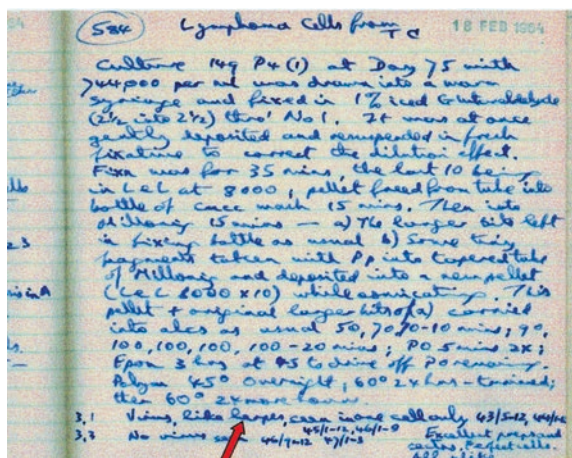 584 Lymphoma Cells from T C 18 FEB 1964
Culture 149 P4 (1) at Day 75 with
744,000 per ml was drawn into a warm
syringe and fixed in 1% iced Gluteraldehyde
(2½ into 2½) thro' No 1. It was at once
gently deposited and resuspended in fresh
fixative to correct the dilution effect.
Fixn was for 35 mins, the last 10 being
in L&L at 8000, pellet freed from tube into
bottle of cacc wash 15 mins. Then into
Millonig 15 mins — a) The larger bits left
in fixing bottle as usual b) Some tiny
fragments taken with Pp into tapered tube
of Millonig and deposited into a new pellet
(L&L 8000 x 10) while sonicating. This
pellet + original larger bits of (a) carried
into alcs as usual 50, 70, 70-10 mins; 90,
100, 100, 100, 100-20 mins; PO 5 mins 2x;
Epon 3 hrs at 45 to drive off PO remaining.
Polym 45° overnight, 60° 24 hrs - trimmed;
then 60° 24 more hours.
3,1 Virus, like herpes, seen in one cell only 43/5-12,
45/1-12, 46/1-9
3,3 No virus seen 46/9-12 47/1-3 Excellent preps and
sections. Perfect cells.